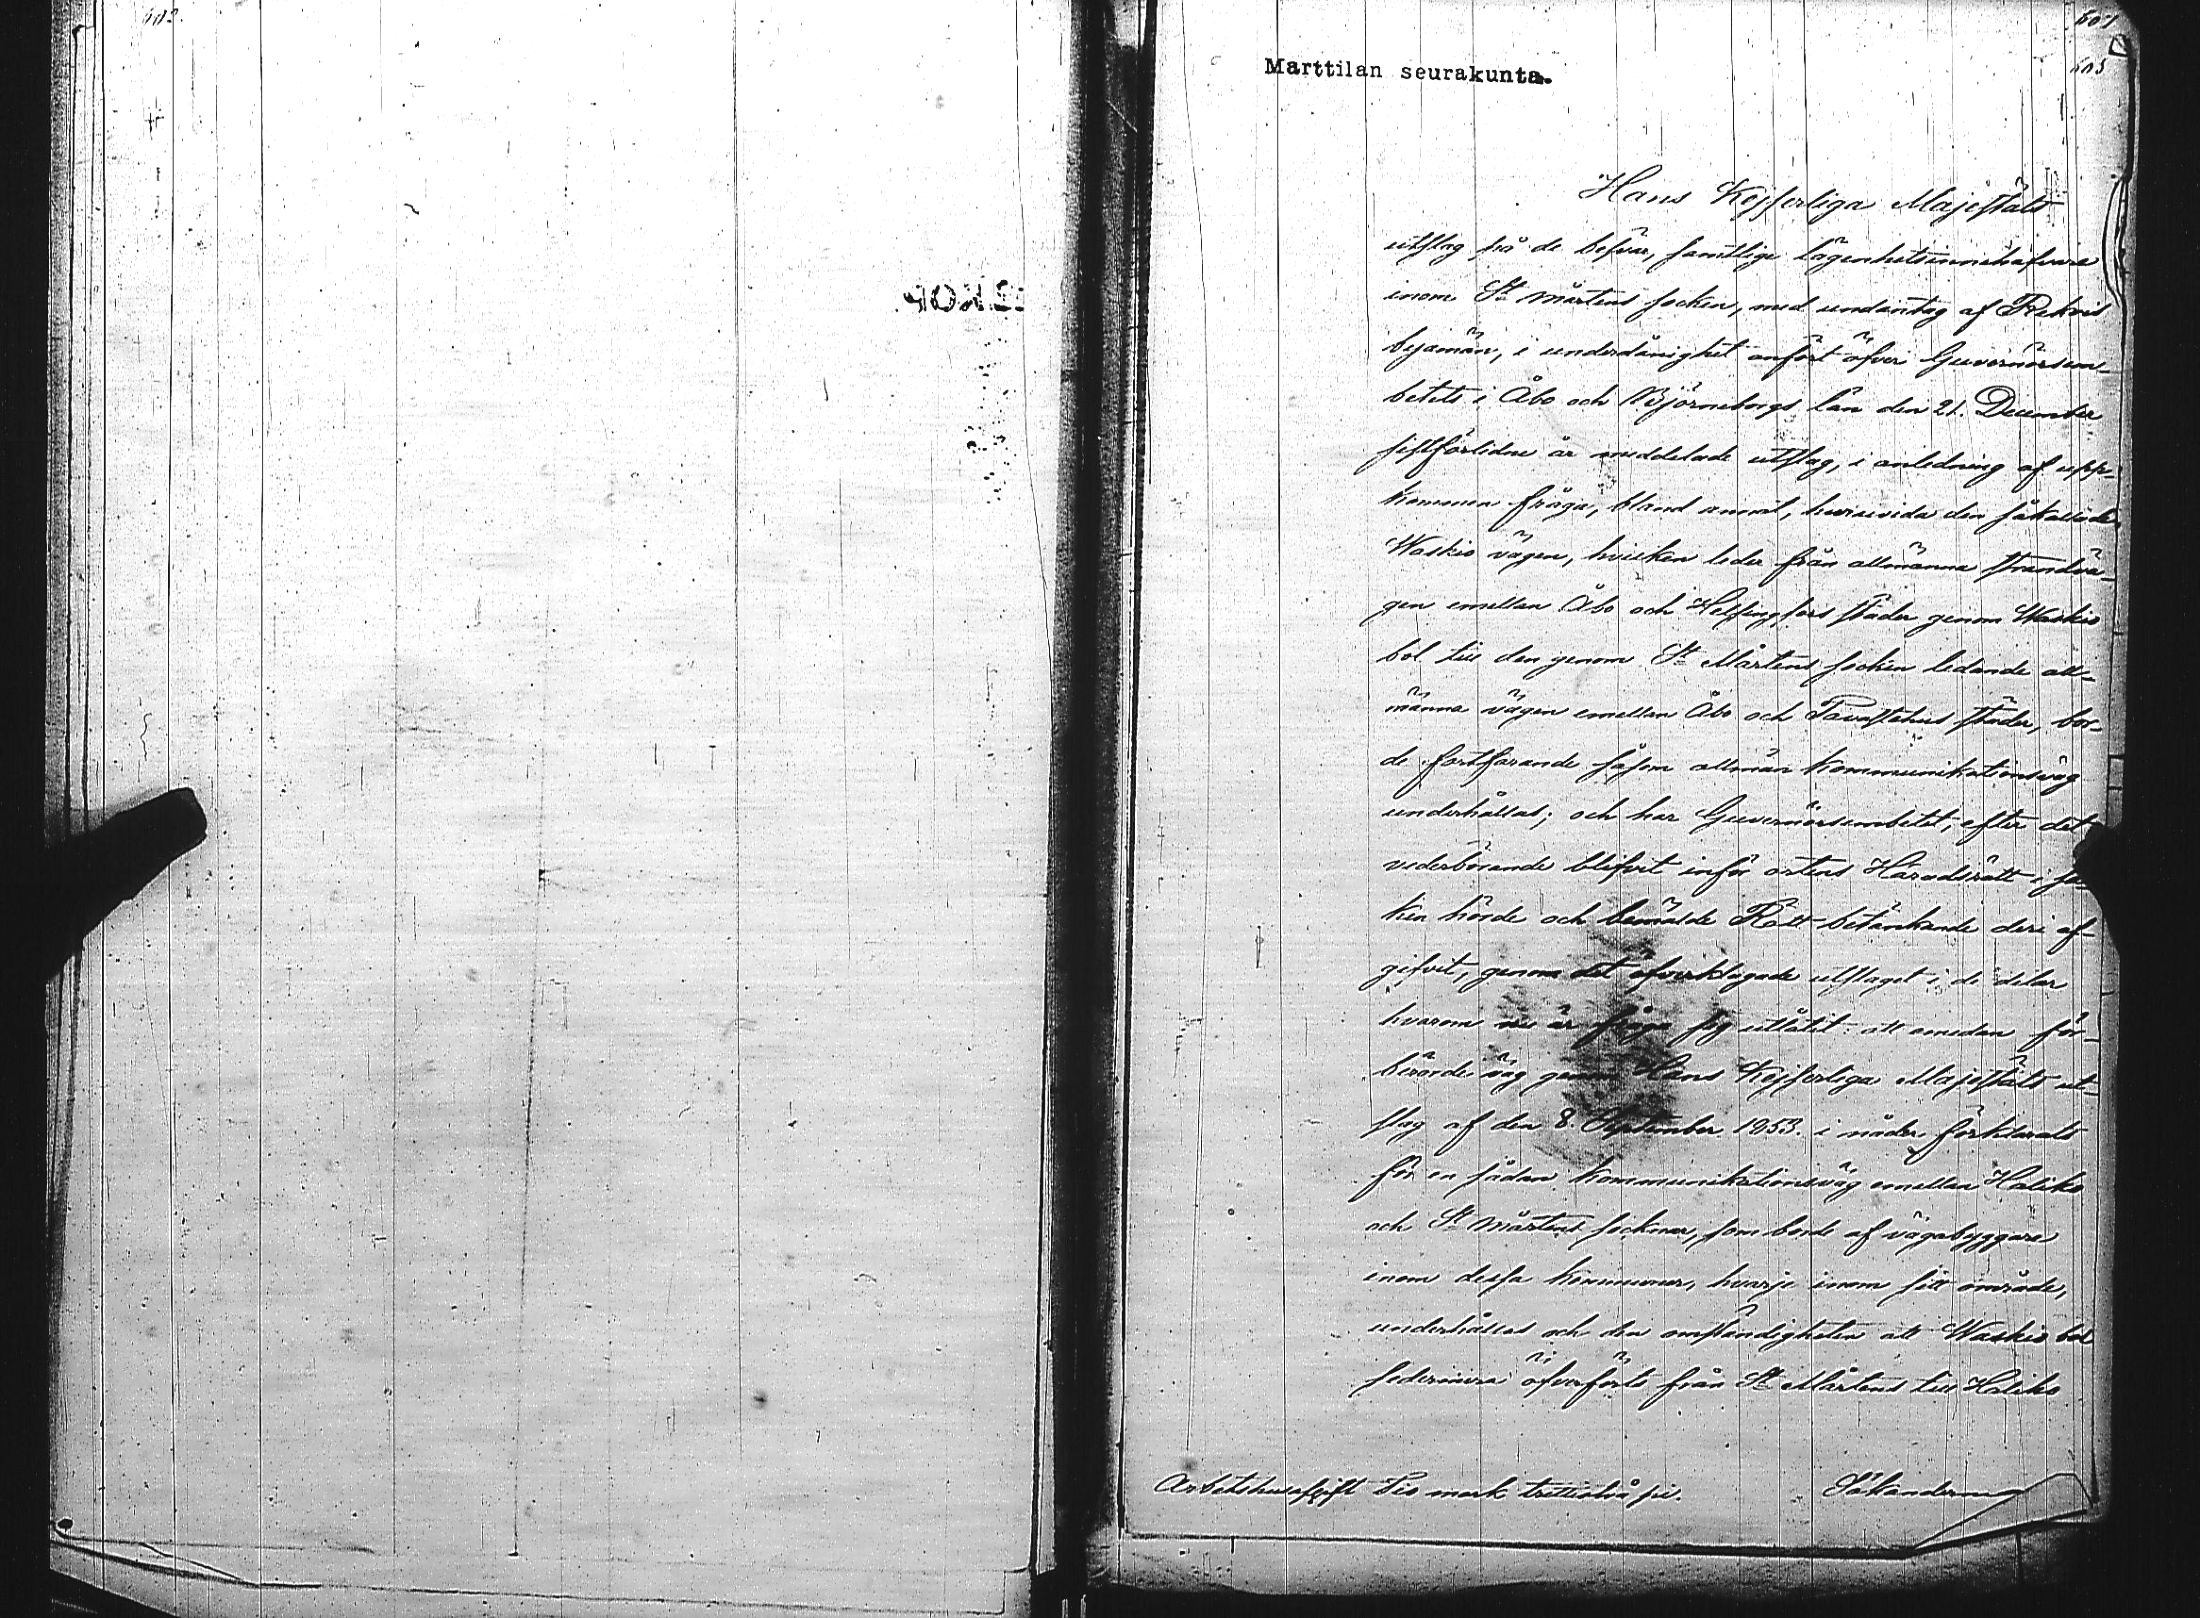 603.
607
605
Marttilan seurakunta.
Hans Kejserliga Majestäts
utslag på de besvär, samtlige lägenhetsinnehafvare
inom St Mårtens socken, med undantag af Rekois
byamän, i underdånighet anfört öfver Guvernörsem-
betets i Åbo och Björneborgs län den 21. December
sistförlidne år meddelade utslag, i anledning af upp-
kommen fråga, bland annat, huruvida den såkallade
Waskio vägen, hvilken leder från allmänna strandvä-
gen emellan Åbo och Helsingfors städer genom Waskio
bol till den genom St Mårtens socken ledande all-
männa vägen emellan Åbo och Tavastehus städer, bor-
de fortfarande såsom allmän kommunikationsväg
underhållas; och har Guvernörsembetet, efter det
vederbörande blifvit inför ortens Häradsrätt i sa-
ken hörde och bemälde Rätt betänkande deri af-
gifvit, genom det öfverklagade utslaget i de delar
hvarom nu är fråga sig utlåtit: att emedan för-
berörde väg genom Hans Kejserliga Majestäts ut-
slag af den 8. September 1853. i nåder förklarats
för en sådan kommunikationsväg emellan Haliko
och St Mårtens socknar, som borde af vägabyggare
inom dessa kommuner, hvarje inom sitt område,
underhållas och den omständigheten att Waskio bol
sedermera öfverförts från St Mårtens till Haliko
Arbetshusafgift Tio mark trettiotvå pi.
Sökanderne